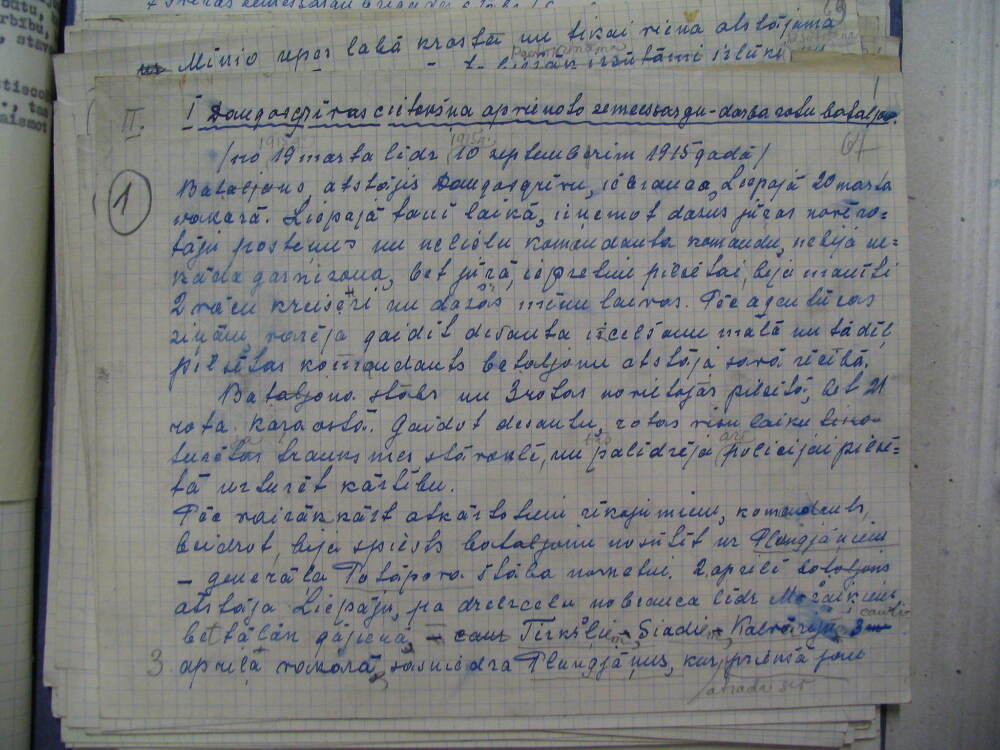 Minio upes labā krastā un tikai viena atstājama
II. I Daugavgrīvas cietokšņa apvienoto zemessargu-darba rotu bataljons.
/no 19 marta līdz 10 septembrim 1915 gadā/ 67
1 Bataljons, atstājis Daugavgrīvu, iebrauca Liepajā 20 marta
vakarā. Liepajā tanī laikā, izņemot dažus jūras novēro=
tāju posteņus un nelielu komandanta komandu, nebija ne=
kāda garnizona, bet jūrā, iepretim pilsētai, bija manīti
2 vācu kreiseri un dažas mīnu laivas. Pēc agentūras
ziņām varēja gaidīt desanta izcelšanu malā un tādēļ
pilsētas komandants bataljonu atstāja savā rīcībā.
Bataljona štābs un 3 rotas novietojās pilsētā, bet 21
rota Karaostā. Gaidot desantu, rotas visu laiku
turētas trauksmes stāvoklī, un palīdzēja arī policijai pilsē=
tā uzturēt kārtību.
Pēc vairākkārt atkārtotiem rīkojumiem, komandants,
beidzot, bija spiests bataljonu nosūtīt uz Plungjāņiem
– generāļa Potapova štāba nometni. 2. aprilī bataljons
atstāja Liepāju, pa dzelzceļu nobrauca līdz Mažeiķiem
bet tālāk gājienā, – caur Tirkšļiem, Siadiem, Kalvāriju
3. aprīļa vakarā, sasniedza Plungjāņus, kur, piensā
atrada sev